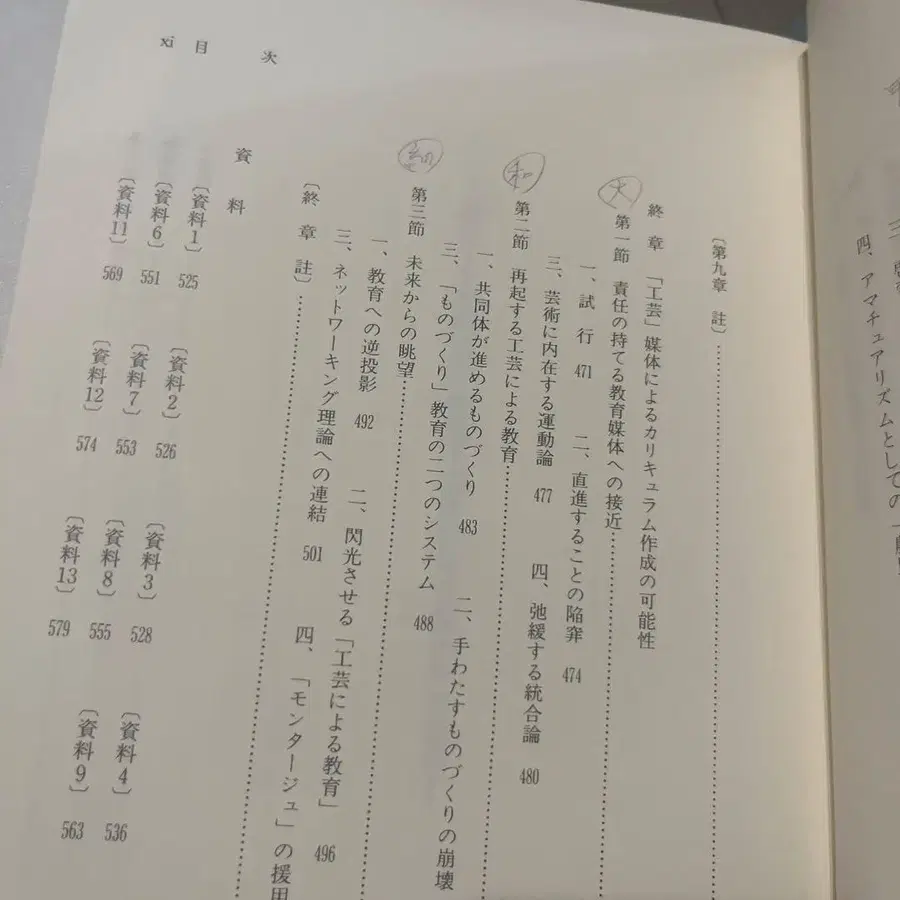 xi 目 次
〔第九章 註〕
終 章 「工芸」媒体によるカリキュラム作成の可能性
大
第一節 責任の持てる教育媒体への接近
一、試 行 471 二、直進することの陥穽 474
三、芸術に内在する運動論 477 四、弛緩する統合論 480
和
第二節 再起する工芸による教育
一、共同体が進めるものづくり 483 二、手わたすものづくりの崩壊
三、「ものづくり」教育の二つのシステム 488
第三節 未来からの眺望
一、教育への逆投影 492 二、閃光させる「工芸による教育」 496
三、ネットワーキング理論への連結 501 四、「モンタージュ」の援用
〔終 章 註〕
資 料
〔資料1〕 525 〔資料2〕 526 〔資料3〕 528 〔資料4〕 536
〔資料6〕 551 〔資料7〕 553 〔資料8〕 555 〔資料9〕 563
〔資料11〕 569 〔資料12〕 574 〔資料13〕 579
四、アマチュアリズムとしての「